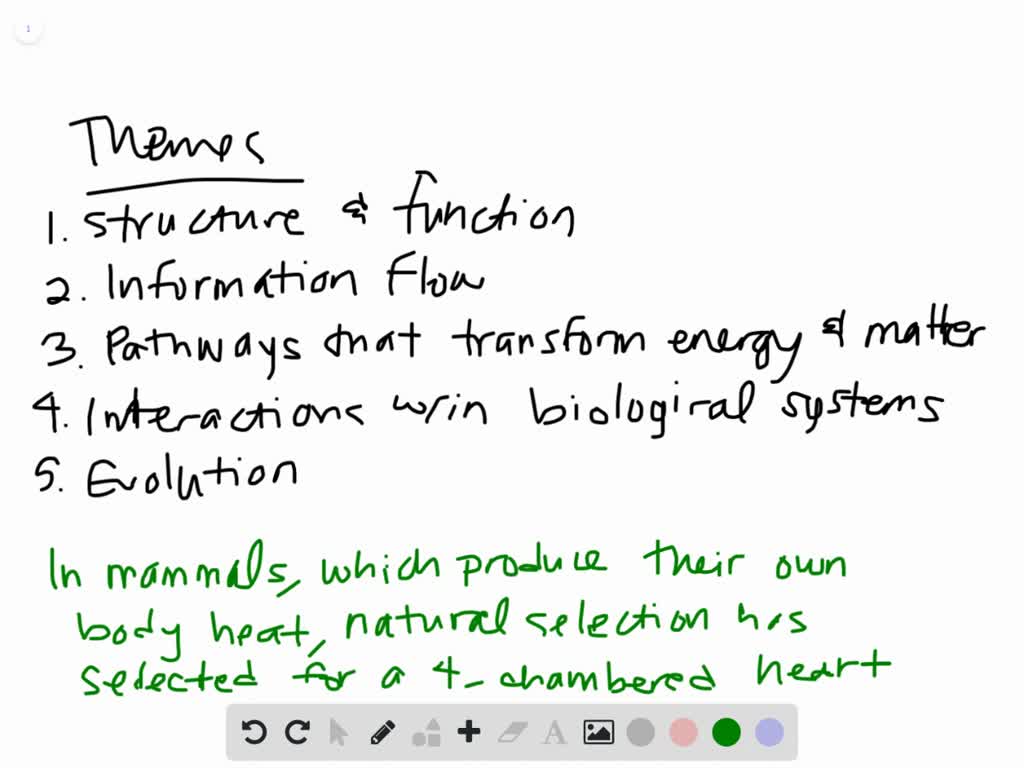 1
Themes
1. Structure & function
2. Information Flow
3. Pathways that transform energy & matter
4. Interactions w/in biological systems
5. Evolution
In mammals, which produce their own
body heat, natural selection has
selected for a 4-chambered heart
A